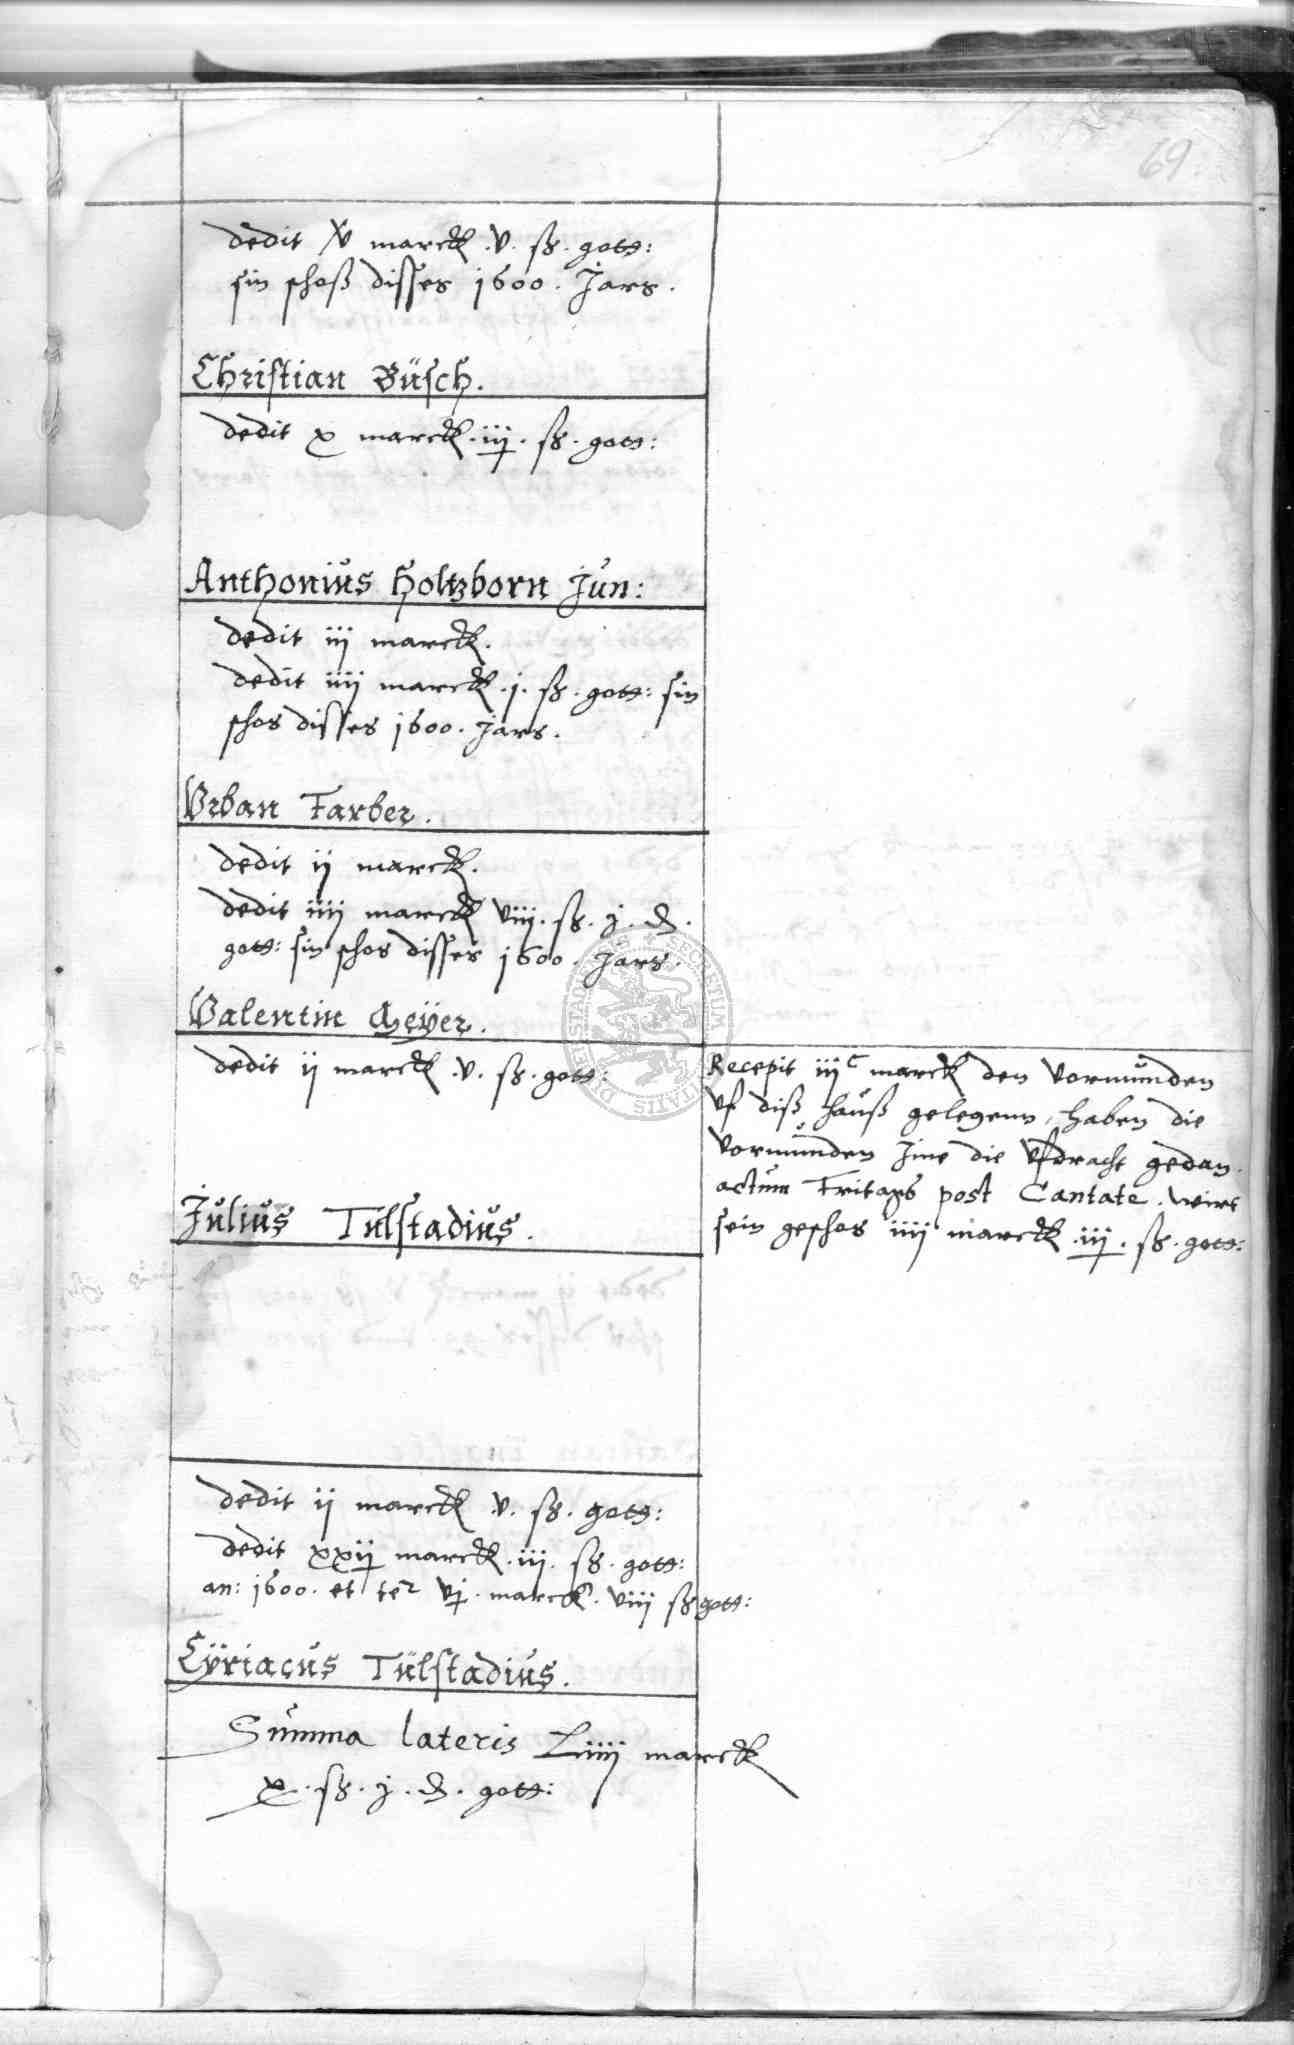 69
dedit xv marck .v. ß. gott:
sin schoß disses 1600. Jars.
Christian Büsch.
dedit x marck .iij. ß. gott:
Anthonius Holtzborn Jun:
dedit iij marck.
dedit iiij marck .j. ß. gott: sin
schos disses 1600. Jars.
Vrban Farber.
dedit ij marck.
dedit iiij marck viij. ß. j. ₰.
gott: sin schos disses 1600. Jars.
Valentin Geÿer.
dedit ij marck .v. ß. gott:
Recepit iijᶜ marck den vormunden
vf diß hauß gelegenn, haben die
vormunden Jme die vfdracht gedan.
actum Fritags post Cantate. wirt
sein geschos iiij marck .iij. ß. gott:
Julius Tulstadius.
dedit ij marck .v. ß. gott:
dedit xxij marck .iij. ß. gott:
an: 1600. et vj. marck. viij ß gott:
Cÿriacus Tülstadius.
Summa lateris Liiij marck
x. ß. j. ₰. gott:
SECRETUM